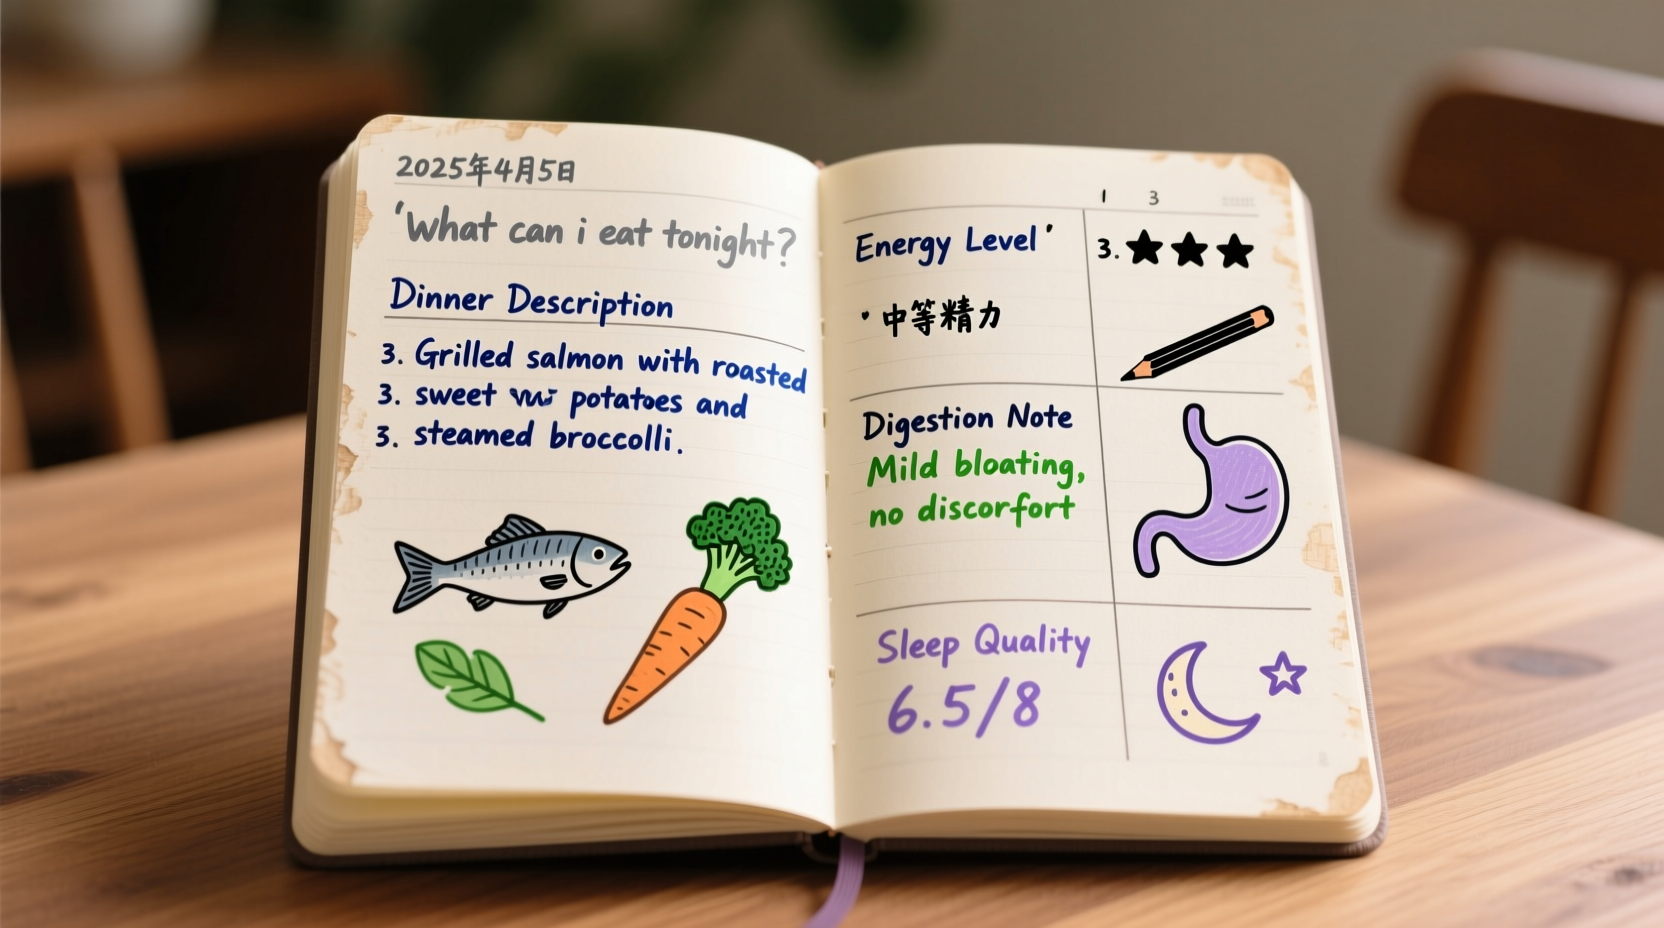 2025年4月5日
'What can i eat tonight?
Dinner Description
3. Grilled salmon with roasted
3. sweet potatoes and
3. steamed broccolli.
1 3
Energy Level'
3. ★★★
· 中等精力
Digestion Note
Mild bloating,
no discorfort
Sleep Quality
6.5/8